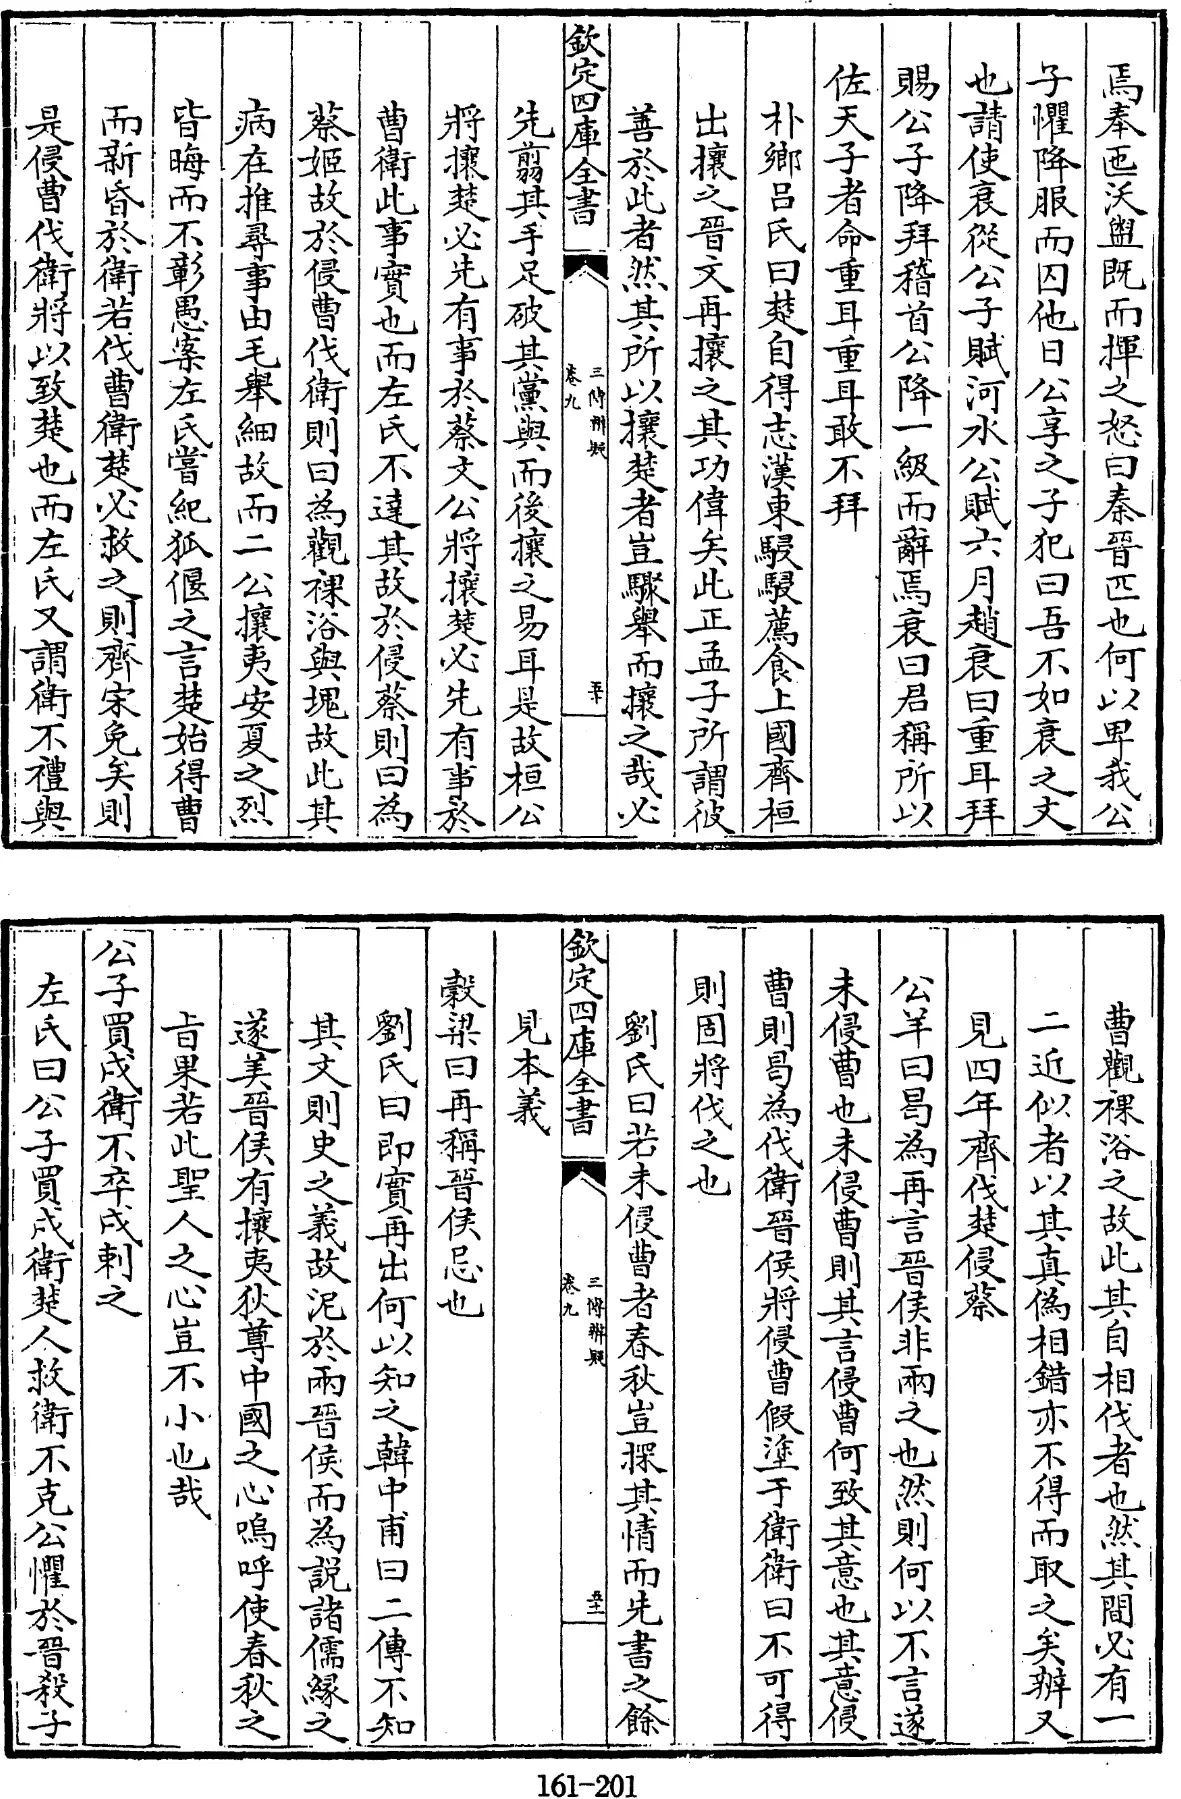 焉奉匜沃盥既而揮之怒曰秦晉匹也何以卑我公
子懼降服而囚他日公享之子犯曰吾不如衰之文
也請使衰從公子賦河水公賦六月趙衰曰重耳拜
賜公子降拜稽首公降一級而辭焉衰曰君稱所以
佐天子者命重耳重耳敢不拜
朴鄉呂氏曰楚自得志漢東駸駸薦食上國齊桓
出攘之晉文再攘之其功偉矣此正孟子所謂彼
善於此者然其所以攘楚者豈驟舉而攘之哉必
欽定四庫全書
三傳辨疑
卷九
五十
先翦其手足破其黨與而後攘之易耳是故桓公
將攘楚必先有事於蔡文公將攘楚必先有事於
曹衛此事實也而左氏不達其故於侵蔡則曰為
蔡姬故於侵曹伐衛則曰為觀裸浴與塊故此其
病在推尋事由毛舉細故而二公攘夷安夏之烈
皆晦而不彰愚案左氏嘗紀狐偃之言楚始得曹
而新昏於衛若伐曹衛楚必救之則齊宋免矣則
是侵曹伐衛將以致楚也而左氏又謂衛不禮與
曹觀裸浴之故此其自相伐者也然其間必有一
二近似者以其真偽相錯亦不得而取之矣辨又
見四年齊伐楚侵蔡
公羊曰曷為再言晉侯非兩之也然則何以不言遂
未侵曹也未侵曹則其言侵曹何致其意也其意侵
曹則曷為伐衛晉侯將侵曹假塗于衛衛曰不可得
則固將伐之也
劉氏曰若未侵曹者春秋豈探其情而先書之餘
欽定四庫全書
三傳辨疑
卷九
五十一
見本義
穀梁曰再稱晉侯忌也
劉氏曰即實再出何以知之韓中甫曰二傳不知
其文則史之義故泥於兩晉侯而為說諸儒緣之
遂美晉侯有攘夷狄尊中國之心嗚呼使春秋之
旨果若此聖人之心豈不小也哉
公子買戍衛不卒戍刺之
左氏曰公子買戍衛楚人救衛不克公懼於晉殺子
161-201